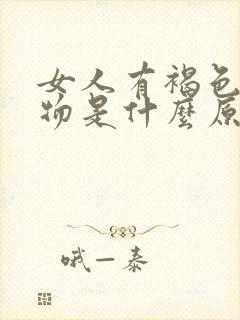 女人有褐色
物是什麼原
哦一泰